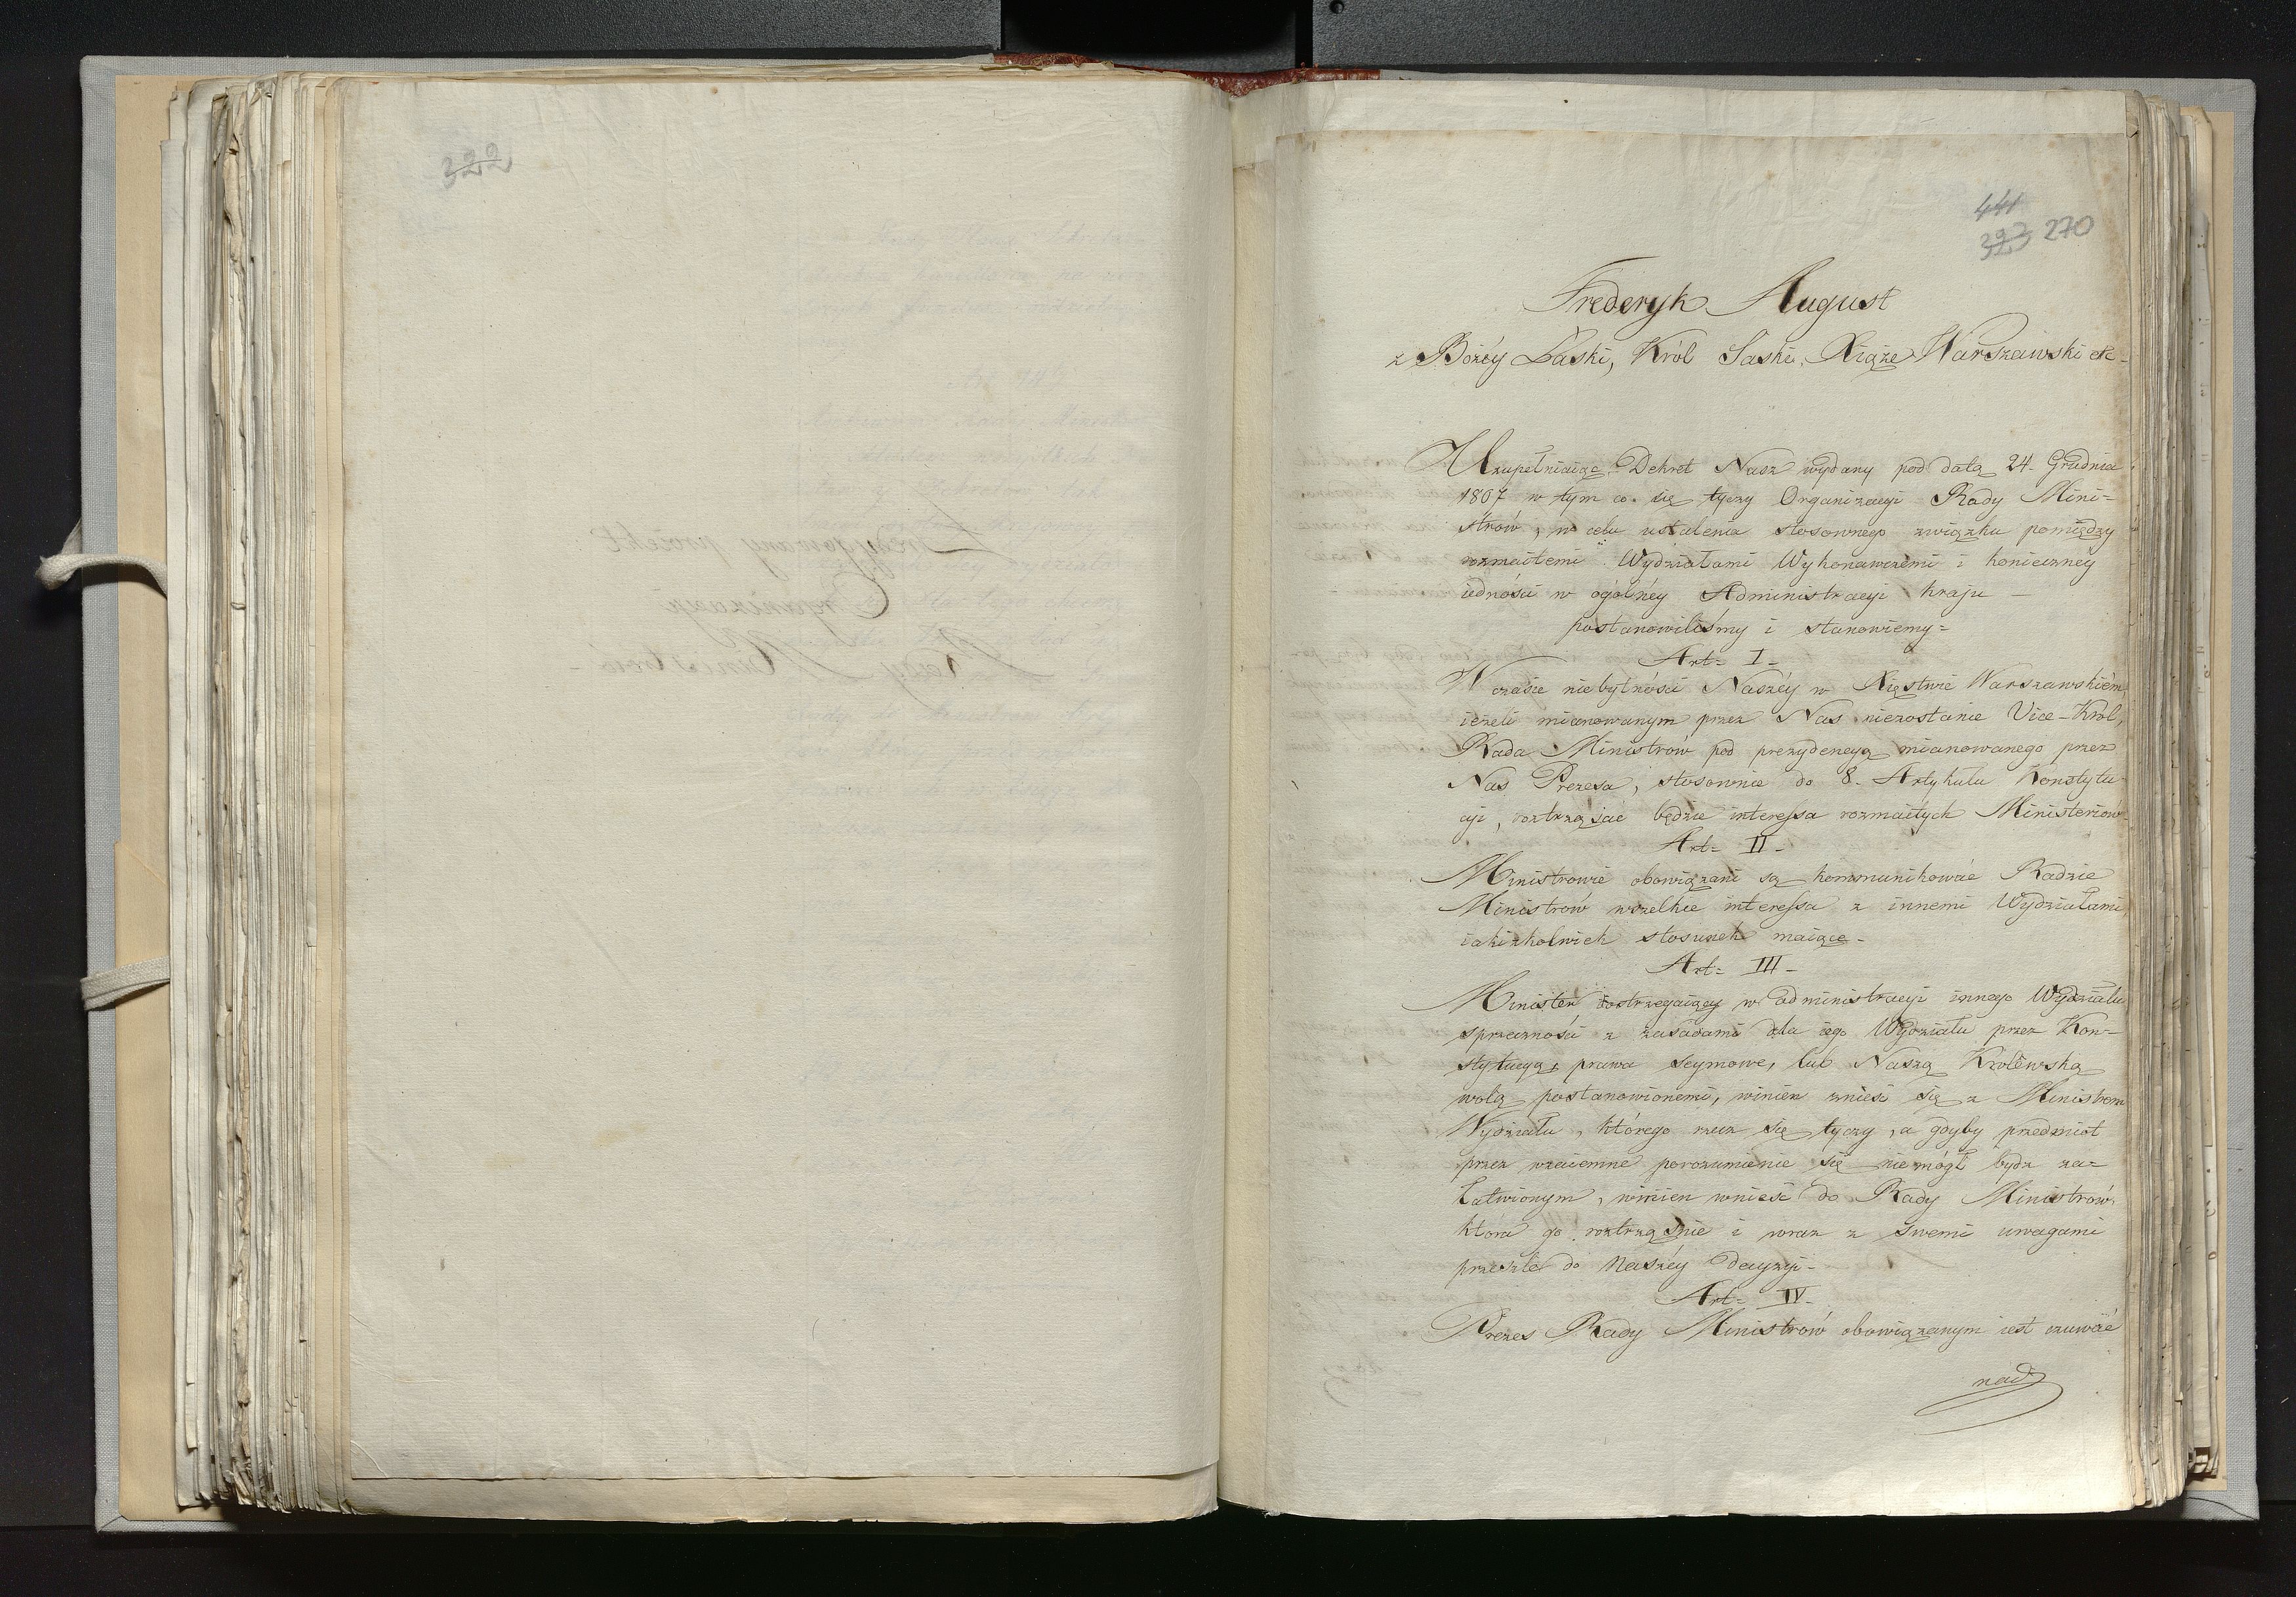 322
441
323 270
Frederyk August
z Bożéy Łaski, Król Saski, Xiąże Warszawski etc-
Uzupełniaiąc Dekret Nasz wydany pod datą 24. Grudnia
1807 w tym co się tyczy Organizacyi Rady Mini=
strów, w celu ustalenia stosownego związku pomiędzy
rozmaitemi Wydziałami Wykonawczemi i konieczney
iedności w ogólnéy Administracyi kraju —
postanowiliśmy i stanowiemy=
Art= I-
W czasie niebytności Naszéy w Xięstwie Warszawskiém
ieżeli mianowanym przez Nas niezostanie Vice-Król,
Rada Ministrów pod prezydencyą mianowanego przez
Nas Prezesa, stosownie do 8. Artykułu Konstytu-
cyi, roztrząsać będzie interessa rozmaitych Ministeriów-
Art= II-
Ministrowie obowiązani są kommunikować Radzie
Ministrów wszelkie interessa z innemi Wydziałami
iakizkolwiek stosunek maiące-
Art= III-
Minister dostrzegaiący w administracyi innego Wydziału
sprzeczności z zasadami dla iego Wydziału przez Kon=
stytucyą, prawa Seymowe, lub Naszą Królewską
wolą postanowionemi, winien znieść się z Ministrem
Wydziału, którego rzecz się tyczy, a gdyby przedmiot
przez wzaiemne porozumienie się niemógł bydz za=
łatwionym, winien wnieść do Rady Ministrów,
która go roztrząśnie i wraz z swemi uwagami
prześle do Naszéy Decyzyi-
Art= IV-
Prezes Rady Ministrów obowiązanym iest czuwać
nad